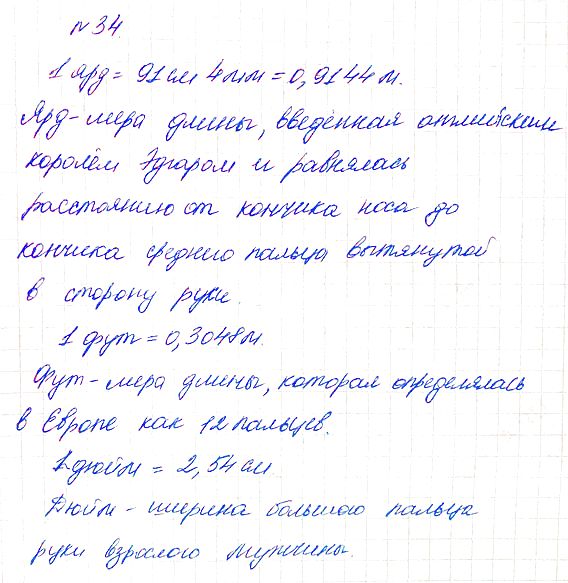 №34.
1 ярд = 91 см 4 мм = 0,9144 м.
Ярд - мера длины, введённая английским
королём Эдгаром и равнялась
расстоянию от кончика носа до
кончика среднего пальца вытянутой
в сторону руки.
1 фут = 0,3048 м.
Фут - мера длины, которая определялась
в Европе как 12 пальцев.
1 дюйм = 2,54 см
Дюйм - ширина большого пальца
руки взрослого мужчины.